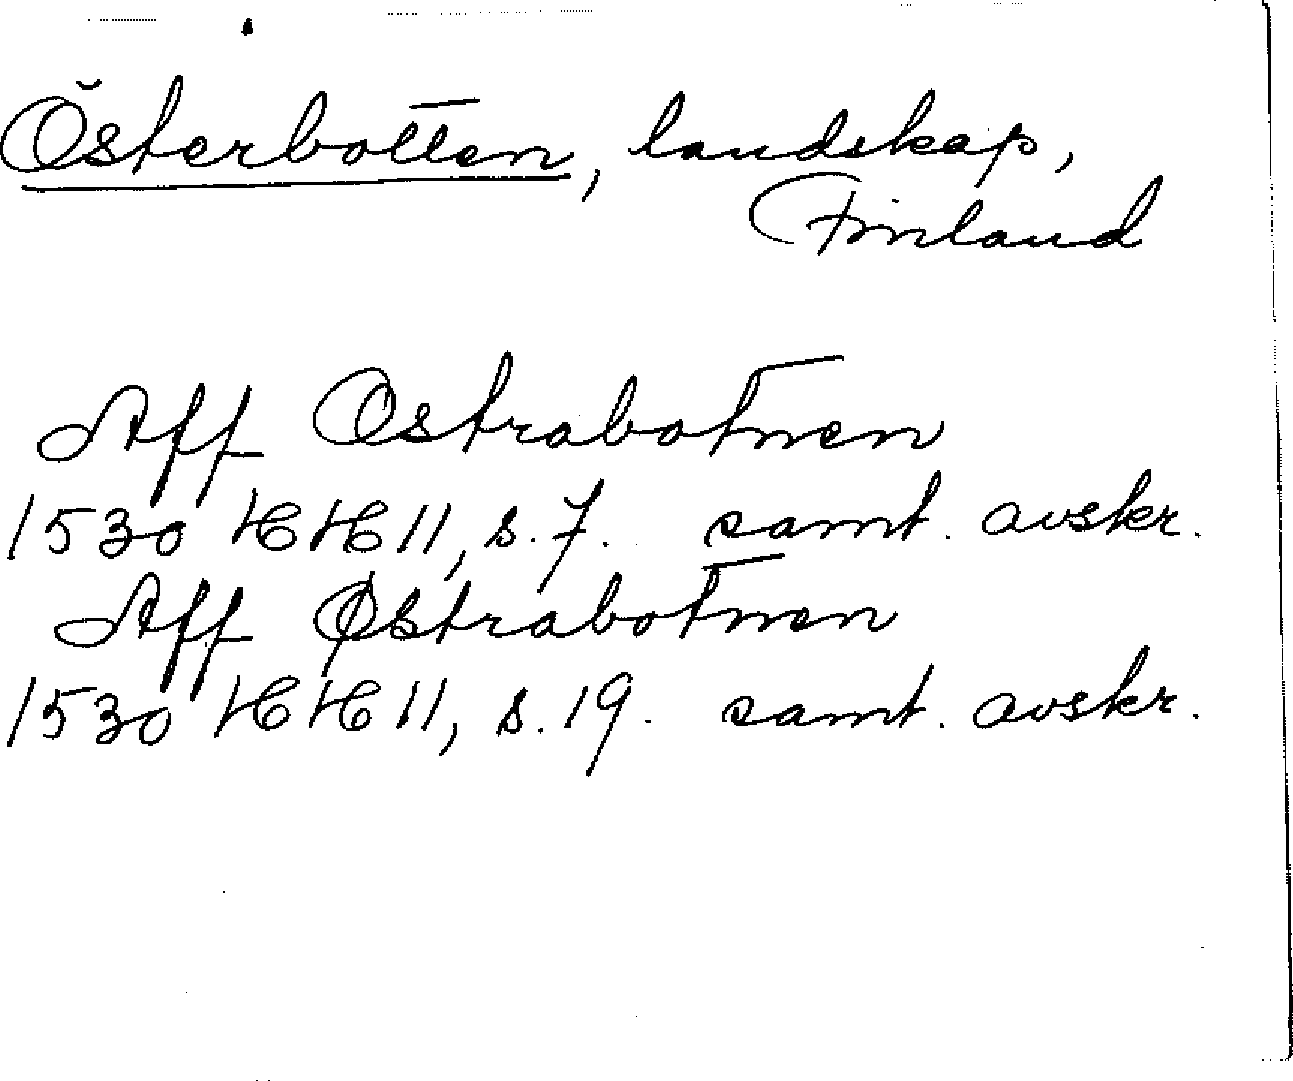 Österbotten, landskap,
Finland
Aff Ostrabotnen
1530 HH 11, s. 7. samt. avskr.
Aff Østrabotnen
1530 HH 11, s. 19. samt. avskr.